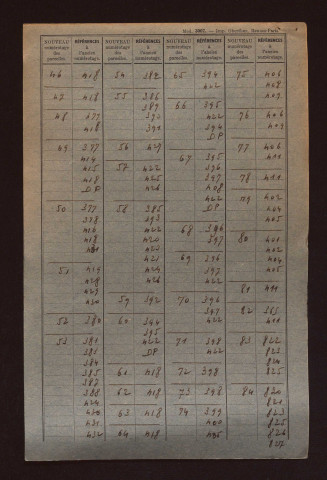 NOUVEAU numérotage des parcelles. RÉFÉRENCES à l'ancien numérotage NOUVEAU numérotage des parcelles. RÉFÉRENCES à l'ancien numérotage NOUVEAU numérotage des parcelles. RÉFÉRENCES à l'ancien numérotage NOUVEAU numérotage des parcelles. RÉFÉRENCES à l'ancien numérotage
46 418 54 382 65 394 75 406
422 408
47 418 55 386 409
389 66 395
48 377 390 422 76 406
378 391 394 409
DP
49 377 56 427 77 406
414 67 395 411
415 57 422 396
418 425 397 78 411
DP 426 408
422 79 402
50 377 58 385 DP 404
378 393 405
416 422 68 396
418 420 397 80 401
421 402
51 419 424 69 396 404
428 426 397 405
429 422
430 59 392 70 396 81 411
397
52 380 60 394 422 82 365
395 411
53 381 422 71 398 83 822
DP 422 823
384 824
385 61 418 72 398 825
387
388 62 418 73 398 84 820
424 821
430 63 418 74 399 823
431 400 825
432 64 418 405 826
827